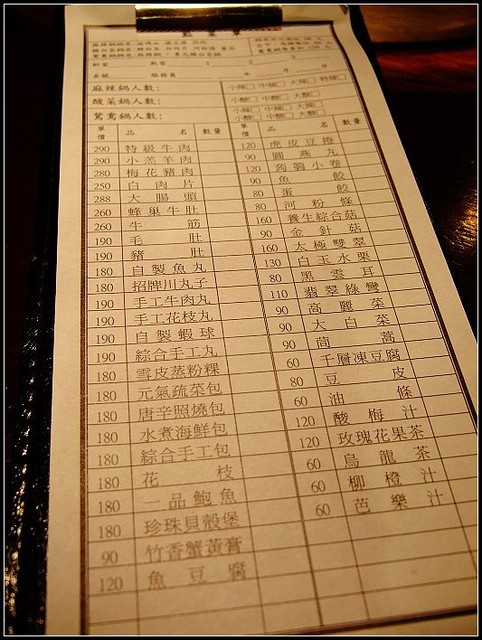 點菜單
麻辣鍋人數：
酸菜鍋人數：
鴛鴦鍋人數：
單價 品名 數量
290 特級牛肉
290 小羔羊肉
280 梅花豬肉
250 白肉片
288 大腸頭
260 蜂巢牛肚
260 牛筋
190 毛肚
190 豬肚
180 自製魚丸
180 招牌川丸子
190 手工牛肉丸
190 手工花枝丸
190 自製蝦球
190 綜合手工丸
180 雪皮蒸粉粿
180 元氣疏菜包
180 唐辛照燒包
180 水煮海鮮包
180 綜合手工包
180 花枝
180 一品鮑魚
180 珍珠貝殼堡
90 竹香蟹黃膏
120 魚豆腐
單價 品名 數量
120 虎皮豆捲
90 圓燕丸
120 蒟蒻小卷
90 魚餃
80 蛋餃
80 河粉條
160 養生綜合菇
90 金針菇
160 太極雙翠
130 白玉水粟
80 黑雲耳
110 翡翠綠彎
90 高麗菜
90 大白菜
90 茼蒿
60 千層凍豆腐
80 豆皮
60 油條
120 酸梅汁
120 玫瑰花果茶
60 烏龍茶
60 柳橙汁
60 芭樂汁